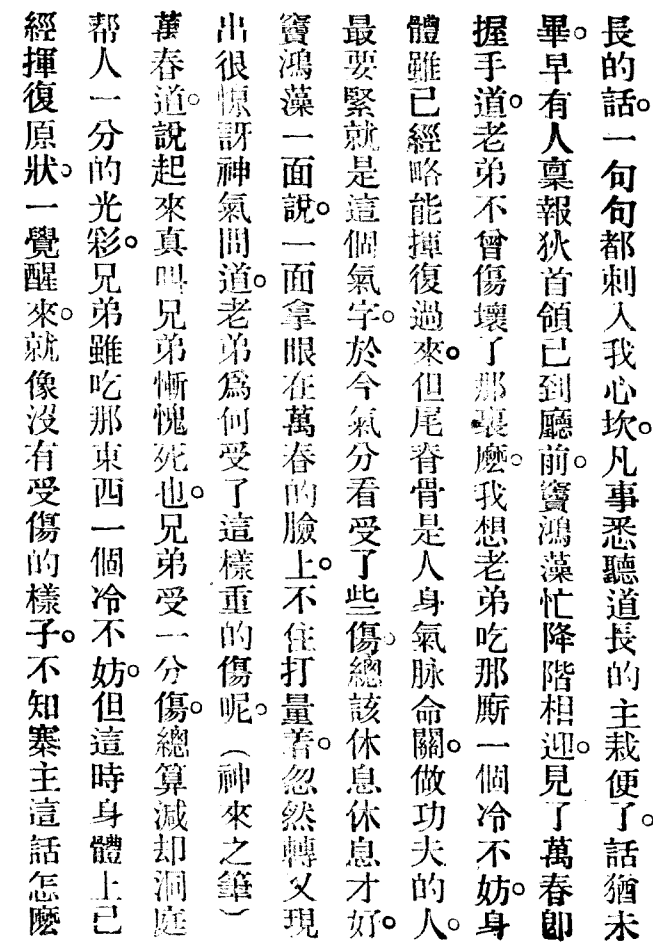 長的話。一句句都刺入我心坎。凡事悉聽道長的主裁便了。話猶未
畢。早有人稟報狄首領已到廳前。竇鴻藻忙降階相迎。見了萬春卽
握手道。老弟不曾傷壞了那裏麽。我想老弟吃那厮一個冷不妨。身
體雖已經略能揮復過來。但尾脊骨是人身氣脉命關。做功夫的人。
最要緊就是這個氣字。於今氣分看受了些傷。總該休息休息才好。
竇鴻藻一面說。一面拿眼在萬春的臉上。不住打量著。忽然轉又現
出很惊訝神氣問道。老弟爲何受了這樣重的傷呢。（神來之筆）
萬春道。說起來真叫兄弟慚愧死也。兄弟受一分傷。總算減却洞庭
帮人一分的光彩。兄弟雖吃那東西一個冷不妨。但這時身體上已
經揮復原狀。一覺醒來。就像沒有受傷的樣子。不知寨主這話怎麽